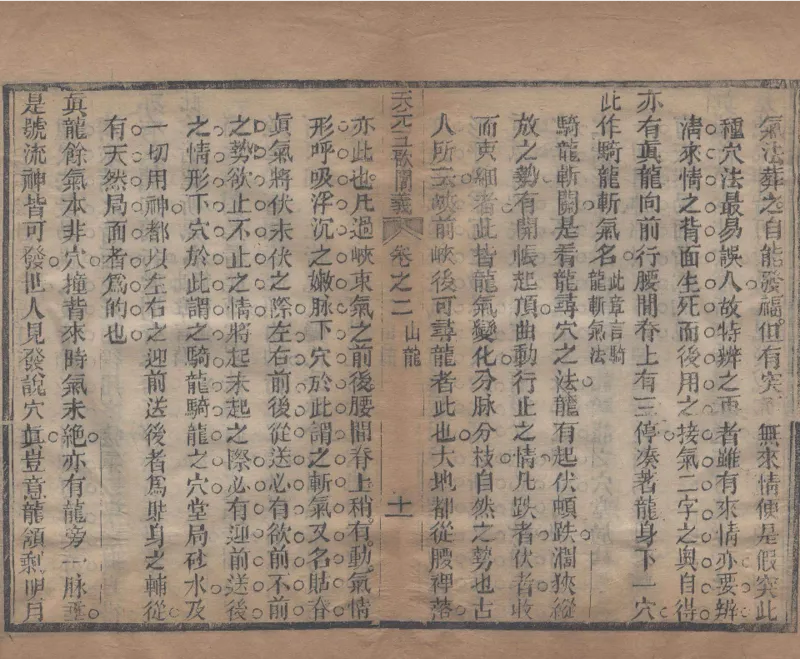 氣法葬之自能發福但有穴無來情便是假究此
種穴法最易誤人故特辨之再者雖有來情亦要辨
清來情之背面生死而後用之接氣二字之奧自得
亦有眞龍向前行腰間脊上有三停湊著龍身下一穴
此作騎龍斬氣名此章言騎龍斬氣法
騎龍斬關是看龍尋穴之法龍有起伏頓跌濶狹縱
放之勢有開帳起頂曲動行止之情凡跌者伏者收
而束細者此皆龍氣變化分脉分枝自然之勢也古
人所云峽前峽後可尋龍者此也大地都從腰裡落
天元五歌闡義 卷之二 山龍 十一
亦此也凡過峽束氣之前後腰間脊上稍有動氣情
形呼吸浮沉之嫩脉下穴於此謂之斬氣又名貼脊
眞氣將伏未伏之際左右前後從送必有欲前不前
之勢欲止不止之情將起未起之際必有迎前送後
之情形下穴於此謂之騎龍騎龍之穴堂局砂水及
一切用神都以左右之迎前送後者爲貼身之輔從
有天然局面者爲的也
眞龍餘氣本非穴撞背來時氣未絶亦有龍旁一脉垂
是號流神皆可發世人見發說穴眞豈意龍頷剩明月